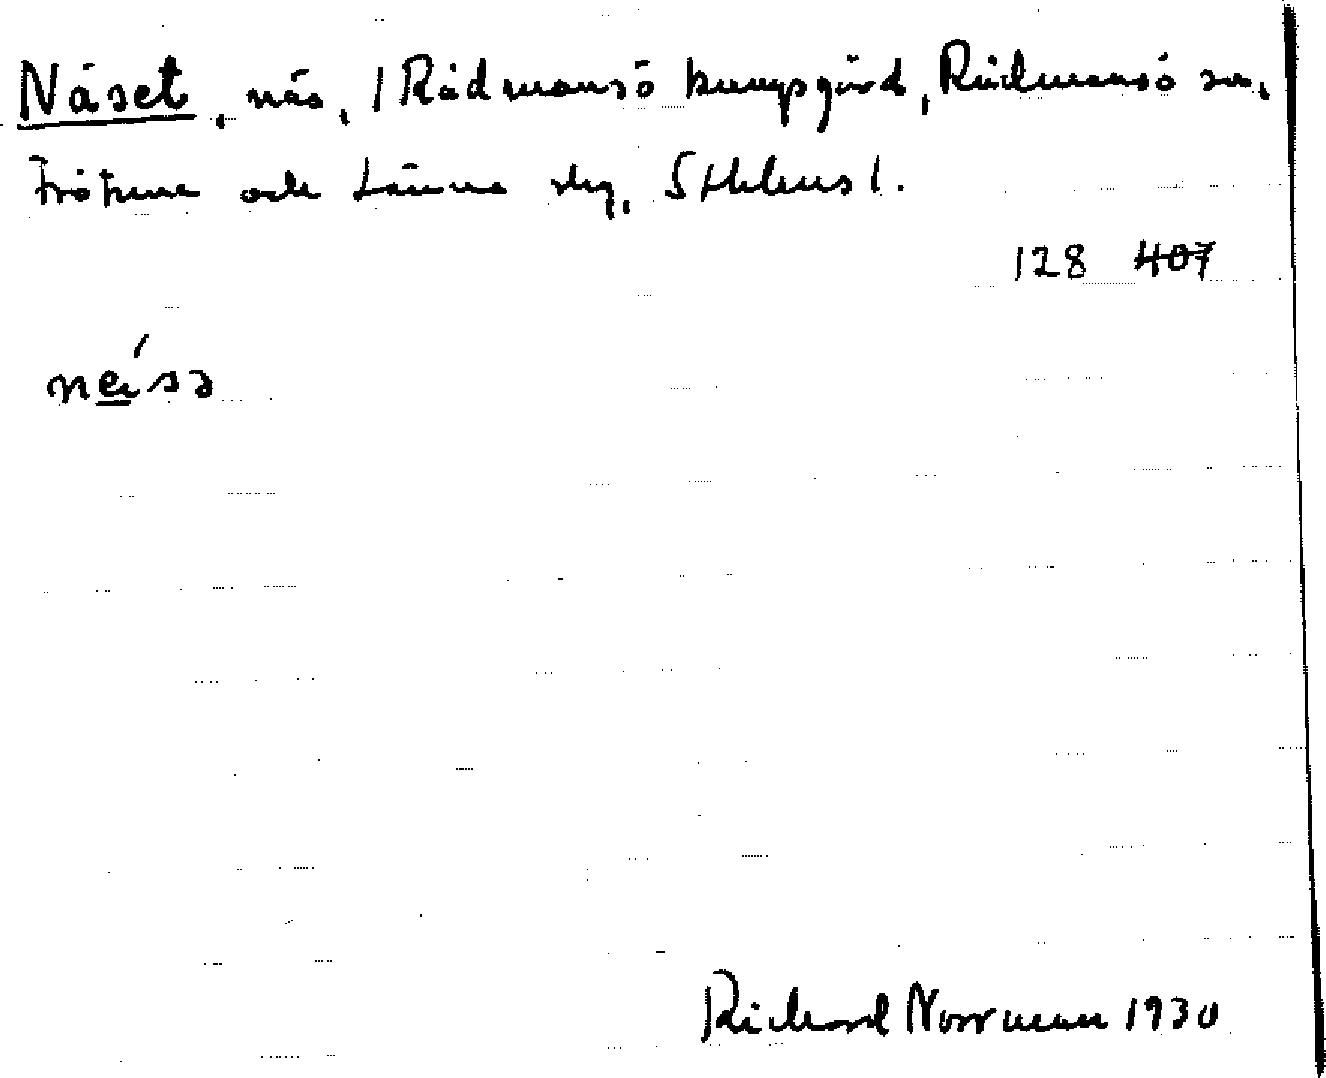 Näset, näs, / Rådmansö kungsgård, Rådmansö sn,
Frötuna och Länna skg, Sthlms l.
128 407
Richard Norrman 1930